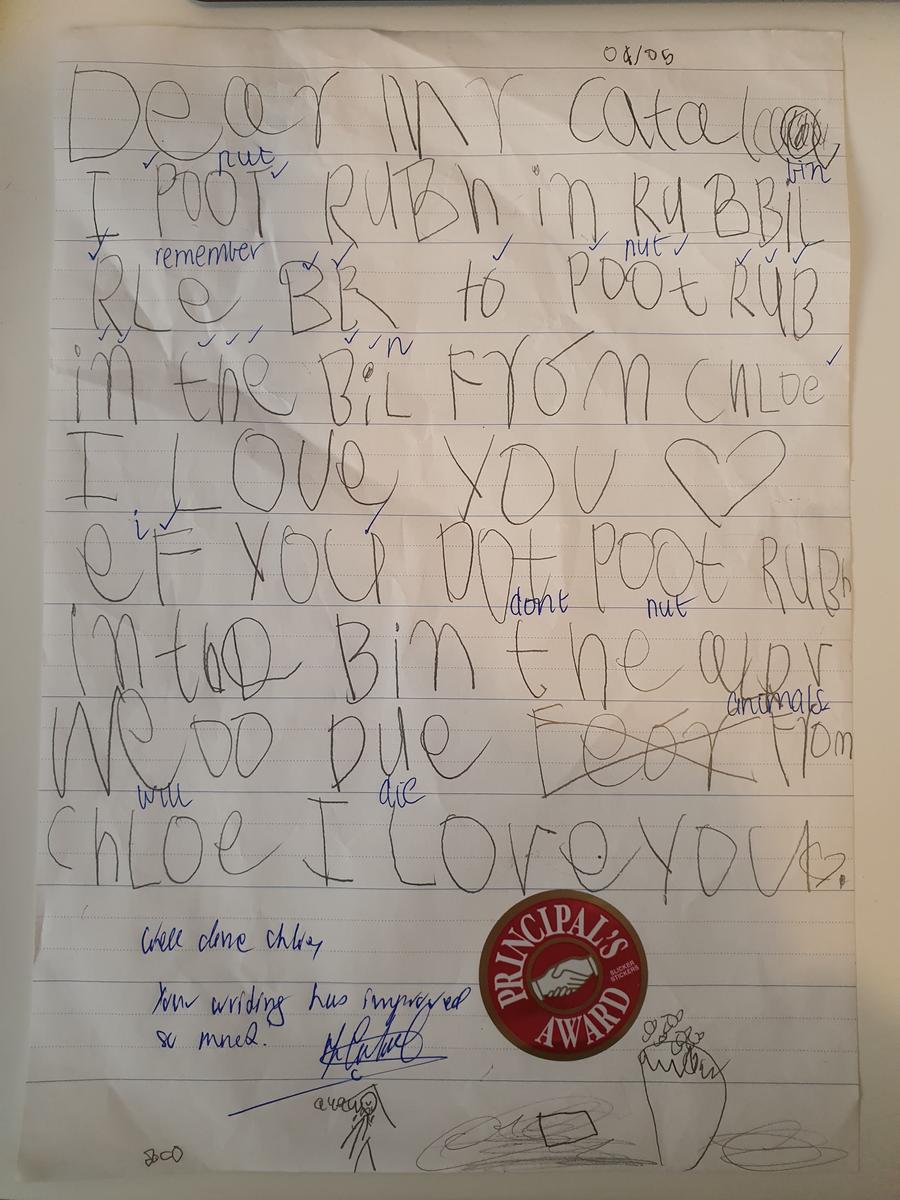 04/05
Dear Mr Catal
put bin
I POOT RUBh in RUBBiL
remember put
RLe BR to POOt RUB
n
in the BiL FrOm ChLOe
I LOVe YOU ♡
i
eF YOU DOt POOt RUBh
dont put
in the Bin the
animals
We oo DUe Feor From
will die
ChLOe I LOveYOU ♡.
Well done chloe
Your writing has improved
so much.
PRINCIPAL'S
AWARD
SLICKER
STICKERS